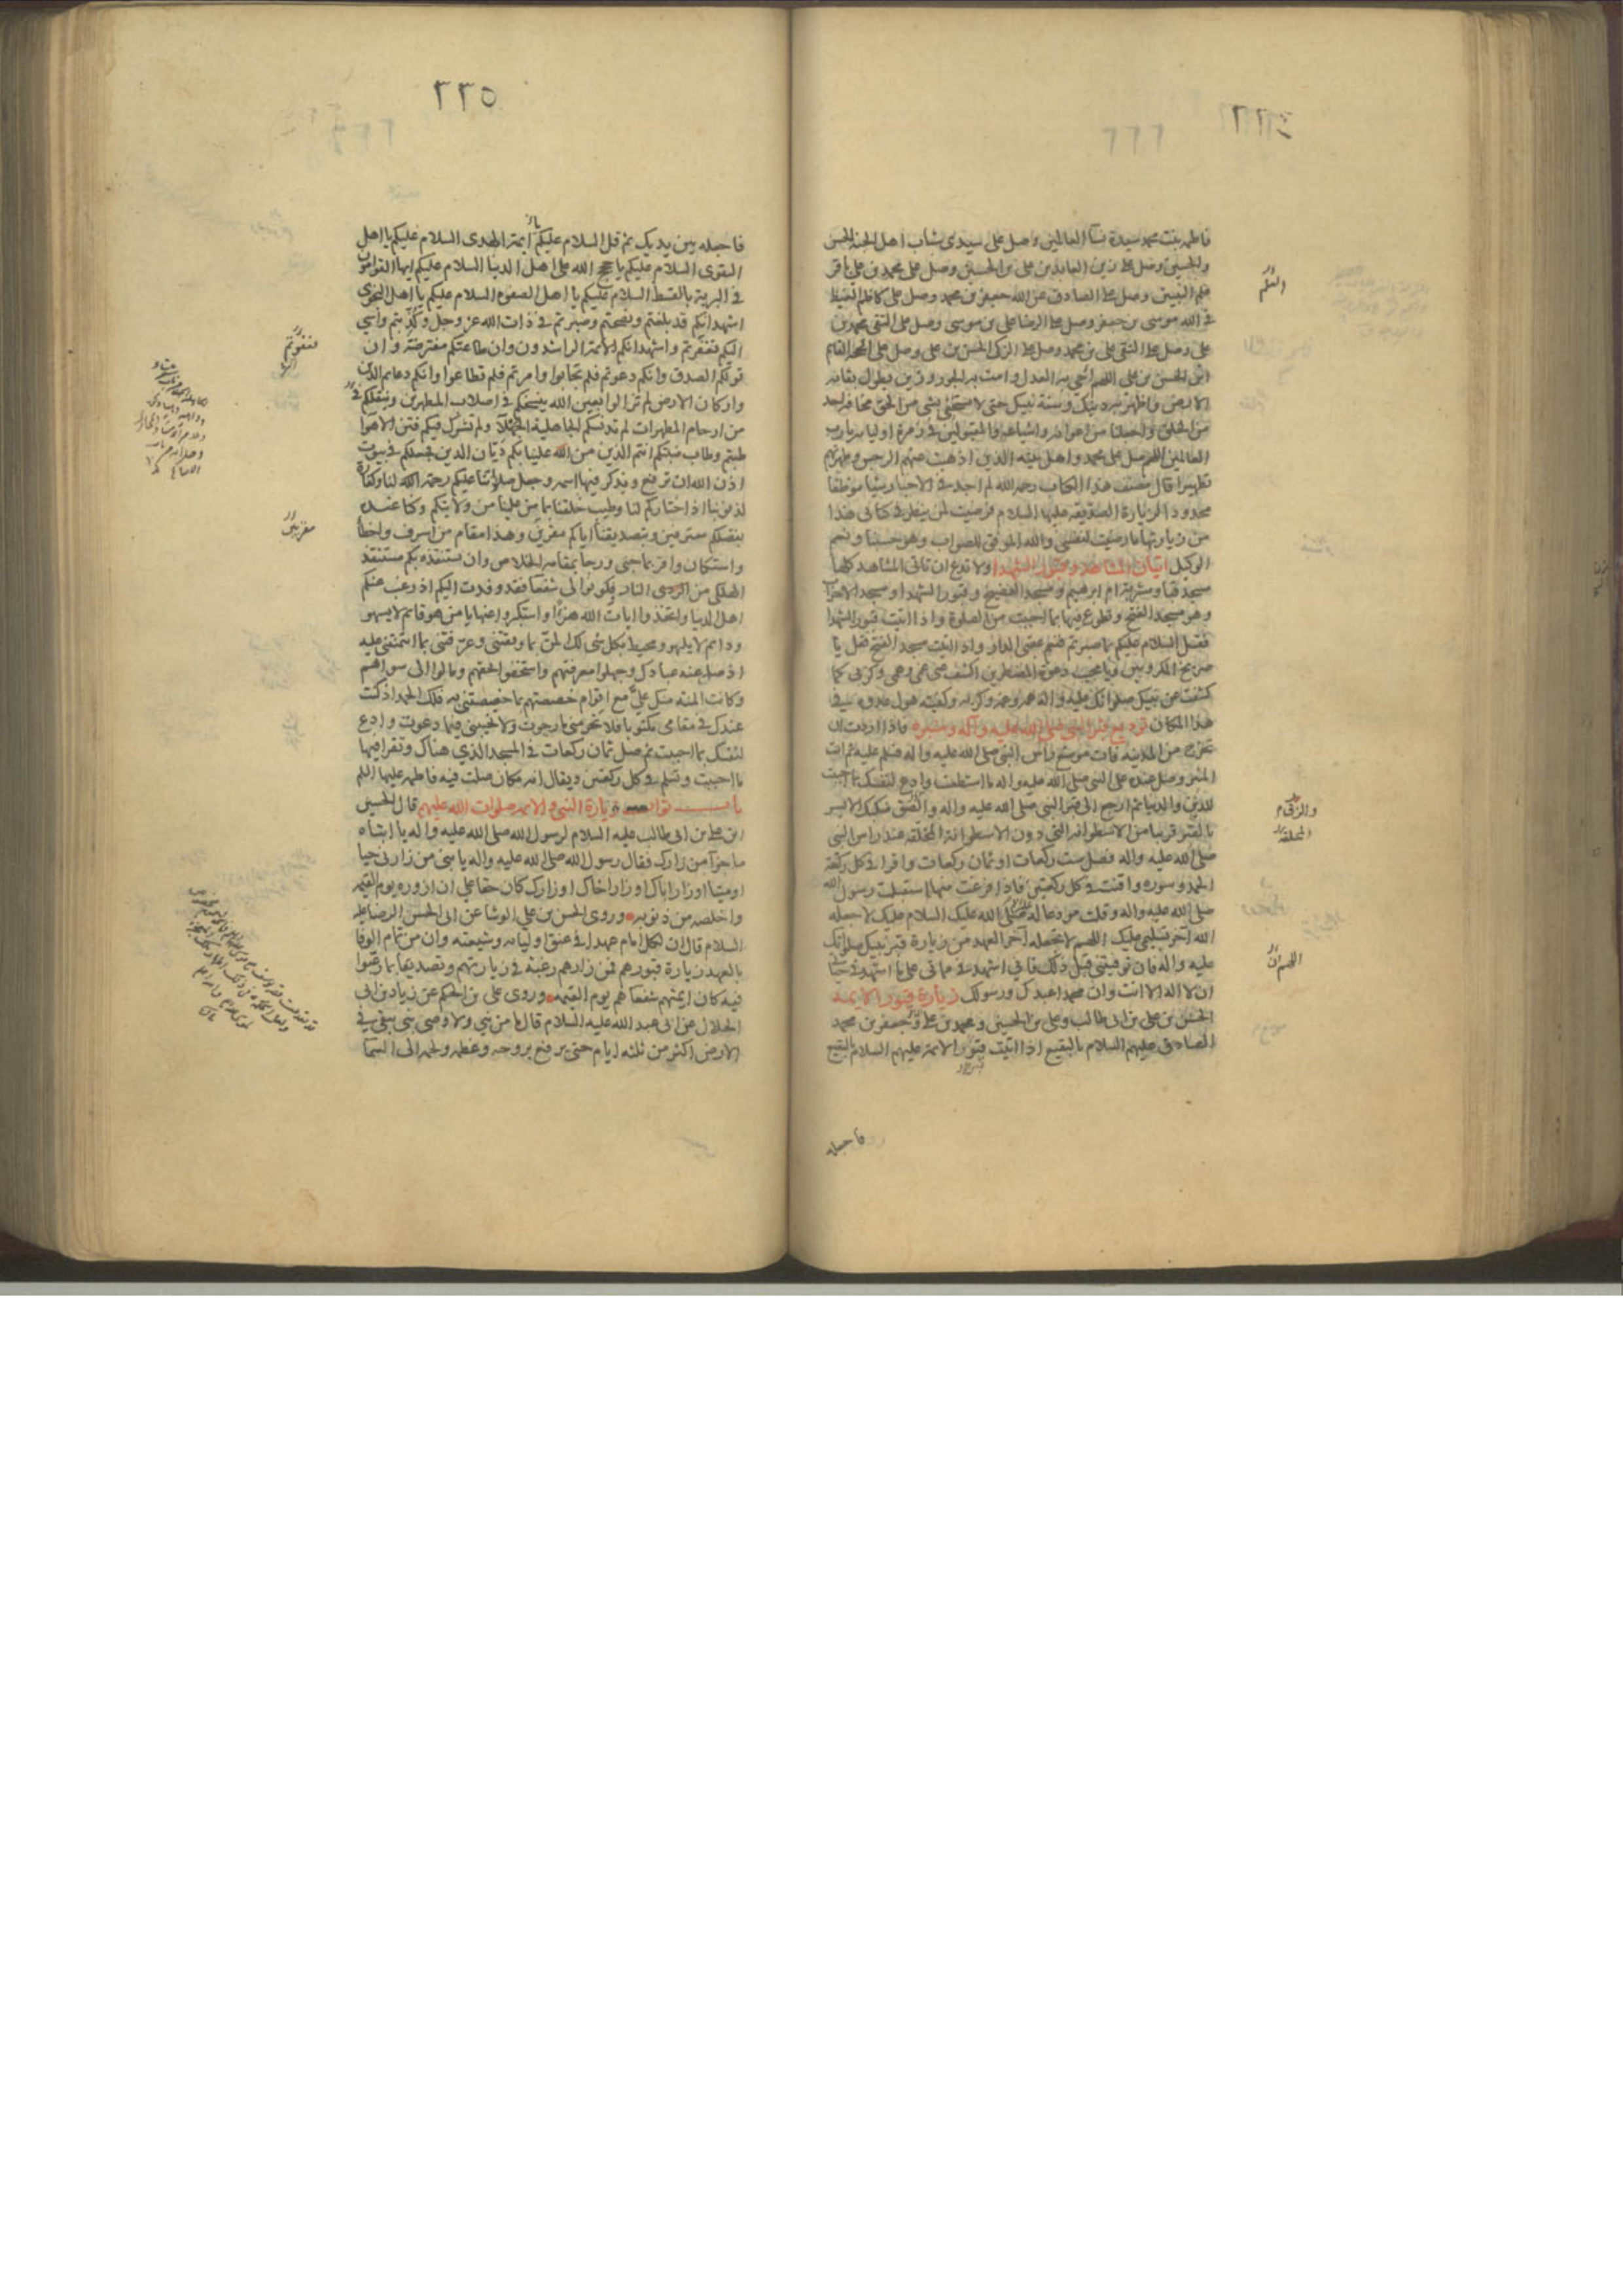 فاطمه بنت محمد سيدة نسآ العالمين وصل على سيدى شباب اهل الجنه الحسن
والحسين وصل على زين العابدين على بن الحسين وصل على محمد بن على باقر
علم النبيين وصل على الصادق عن الله جعفر بن محمد وصل على كاظم الغيظ
فى الله موسى بن جعفر وصل على الرضا على بن موسى وصل على التقى محمد بن
على وصل على النقى على بن محمد وصل على الزكى الحسن بن على وصل على الحجة القايم
ابن الحسن بن على اللهم احى به العدل وامت به الجور وزين بطول بقايه
الارض واظهر به دينك وسنة نبيك حتى لا يستخفى بشى من الحق مخافة احد
من الخلق واجعلنا من اعوانه واشياعه والمقبولين فى زمرة اوليايه يارب
العالمين اللهم صل على محمد واهل بيته الذين اذهبت عنهم الرجس وطهرتهم
تطهيرا قال مصنف هذا الكتاب رحمه الله لم اجد فى الاخبار شيئا موظفا
محدودا لزيارة الصديقه عليها السلام فرضيت لمن نظر فى كتابى هذا
من زيارتها ما رضيت لنفسى والله الموفق للصواب وهو حسبنا ونعم
الوكيل اتيان المشاهد وقبور الشهدا ولا تدع ان تاتى المشاهد كلها
مسجد قبا ومشربة ام ابرهيم ومسجد الفضيخ وقبور الشهدا ومسجد الاحزاب
وهو مسجد الفتح وتطوع فيها بما احببت من الصلوة واذا اتيت قبور الشهدا
فقل السلام عليكم بما صبرتم فنعم عقبى الدار واذا اتيت مسجد الفتح فقل يا
صريخ المكروبين ويا مجيب دعوة المضطرين اكشف عنى غمى وهمى وكربى كما
كشفت عن نبيك صلواتك عليه واله همه وغمه وكربه وكفيته هول عدوه فى
هذا المكان توديع قبر النبى صلى الله عليه وآله ومنبره فاذا اردت ان
تخرج من المدينه فات موضع راس النبى صلى الله عليه واله فسلم عليه ثم ات
المنبر وصل عنده على النبى صلى الله عليه واله ما استطعت وادع لنفسك بما احببت
للدين والدنيا ثم ارجع الى قبر النبى صلى الله عليه واله والصق منكبك الايسر
بالقبر قريبا من الاسطوانه التى دون الاسطوانة المخلقه عند راس النبى
صلى الله عليه واله فصل ست ركعات او ثمان ركعات واقرا فى كل ركعة
الحمد وسوره واقنت فى كل ركعتين فاذا فرغت منها استقبلت رسول الله
صلى الله عليه واله وقلت مودعا له صلى الله عليك السلام عليك لا جعله
الله آخر تسليمى عليك اللهم لا تجعله آخر العهد من زيارة قبر نبيك صلواتك
عليه واله فان توفيتنى قبل ذلك فانى اشهد فى مماتى على ما اشهد فى حياتى
ان لا اله الا انت وان محمدا عبدك ورسولك زيارة قبور الايمه
الحسن بن على بن ابى طالب وعلى بن الحسين ومحمد بن على وجعفر بن محمد
الصادق عليهم السلام بالبقيع اذا اتيت قبور الائمة عليهم السلام بالبقيع
فاجعله
العلم
المخلقه
اللهم ان
٢٢٥
فاجعله بين يديك ثم قل السلام عليكم ائمة الهدى السلام عليكم يا اهل
التقوى السلام عليكم يا حجج الله على اهل الدنيا السلام عليكم ايها القوامون
فى البرية بالقسط السلام عليكم يا اهل الصفوة السلام عليكم يا اهل النجوى
اشهد انكم قد بلغتم ونصحتم وصبرتم فى ذات الله عز وجل وكذبتم واسى
اليكم فغفرتم واشهد انكم الائمة الراشدون وان طاعتكم مفترضة وان
قولكم الصدق وانكم دعوتم فلم تجابوا وامرتم فلم تطاعوا وانكم دعايم الدين
واركان الارض لم تزالوا بعين الله ينسخكم فى اصلاب المطهرين وينقلكم فى
من ارحام المطهرات لم تدنسكم الجاهلية الجهلآ ولم تشرك فيكم فتن الاهوا
طبتم وطاب منبتكم انتم الذين من الله علينا بكم ديان الدين فجعلكم فى بيوت
اذن الله ان ترفع ويذكر فيها اسمه وجعل صلاتنا عليكم رحمة الله لنا وكفارة
لذنوبنا اذ اختاركم لنا وطيب خلقنا بما من علينا من ولايتكم وكنا عنده
بفضلكم معترفين وبتصديقنا اياكم مقرين وهذا مقام من اسرف واخطأ
واستكان واقر بما جنى ورجا بمقامه الخلاص وان يستنقذه بكم مستنقذ
الهلكى من الردى النار فكونوا لى شفعا فقد وفدت اليكم اذ رغب عنكم
اهل الدنيا واتخذوا ايات الله هزوا واستكبروا عنها يا من هو قائم لا يسهو
ودائم لا يلهو ومحيط بكل شى لك المن بما وفقتنى وعرفتنى بما ائتمنتنى عليه
اذ صد عنه عبادك وجهلوا معرفتهم واستخفوا بحقهم ومالوا الى سواهم
وكانت المنة منك على مع اقوام خصصتهم بما خصصتنى به فلك الحمد اذ كنت
عندك فى مقامى مكتوبا فلا تحرمنى ما رجوت ولا تخيبنى فيما دعوت وادع
لنفسك بما احببت ثم صل ثمان ركعات فى المسجد الذى هناك وتقرا فيها
ما احببت وتسلم فى كل ركعتين ويقال انه مكان صلت فيه فاطمه عليها السلم
باب ثواب زيارة النبى والائمه صلوات الله عليهم قال الحسين
ابن على بن ابى طالب عليه السلام لرسول الله صلى الله عليه واله يا ابتاه
ما جزآ من زارك فقال رسول الله صلى الله عليه واله يا بنى من زارنى حيا
او ميتا او زار اباك او زار اخاك او زارك كان حقا على ان ازوره يوم القيمه
واخلصه من ذنوبه وروى الحسن بن على الوشا عن ابى الحسن الرضا عليه
السلام قال ان لكل امام عهدا فى عنق اوليايه وشيعته وان من تمام الوفا
بالعهد زيارة قبورهم فمن زارهم رغبة فى زيارتهم وتصديقا بما رغبوا
فيه كان ايمتهم شفعاهم يوم القيمه وروى على بن الحكم عن زياد بن ابى
الحلال عن ابى عبد الله عليه السلام قال ما من نبى ولا وصى نبى يبقى فى
الارض اكثر من ثلثه ايام حتى يرفع بروحه وعظمه ولحمه الى السما